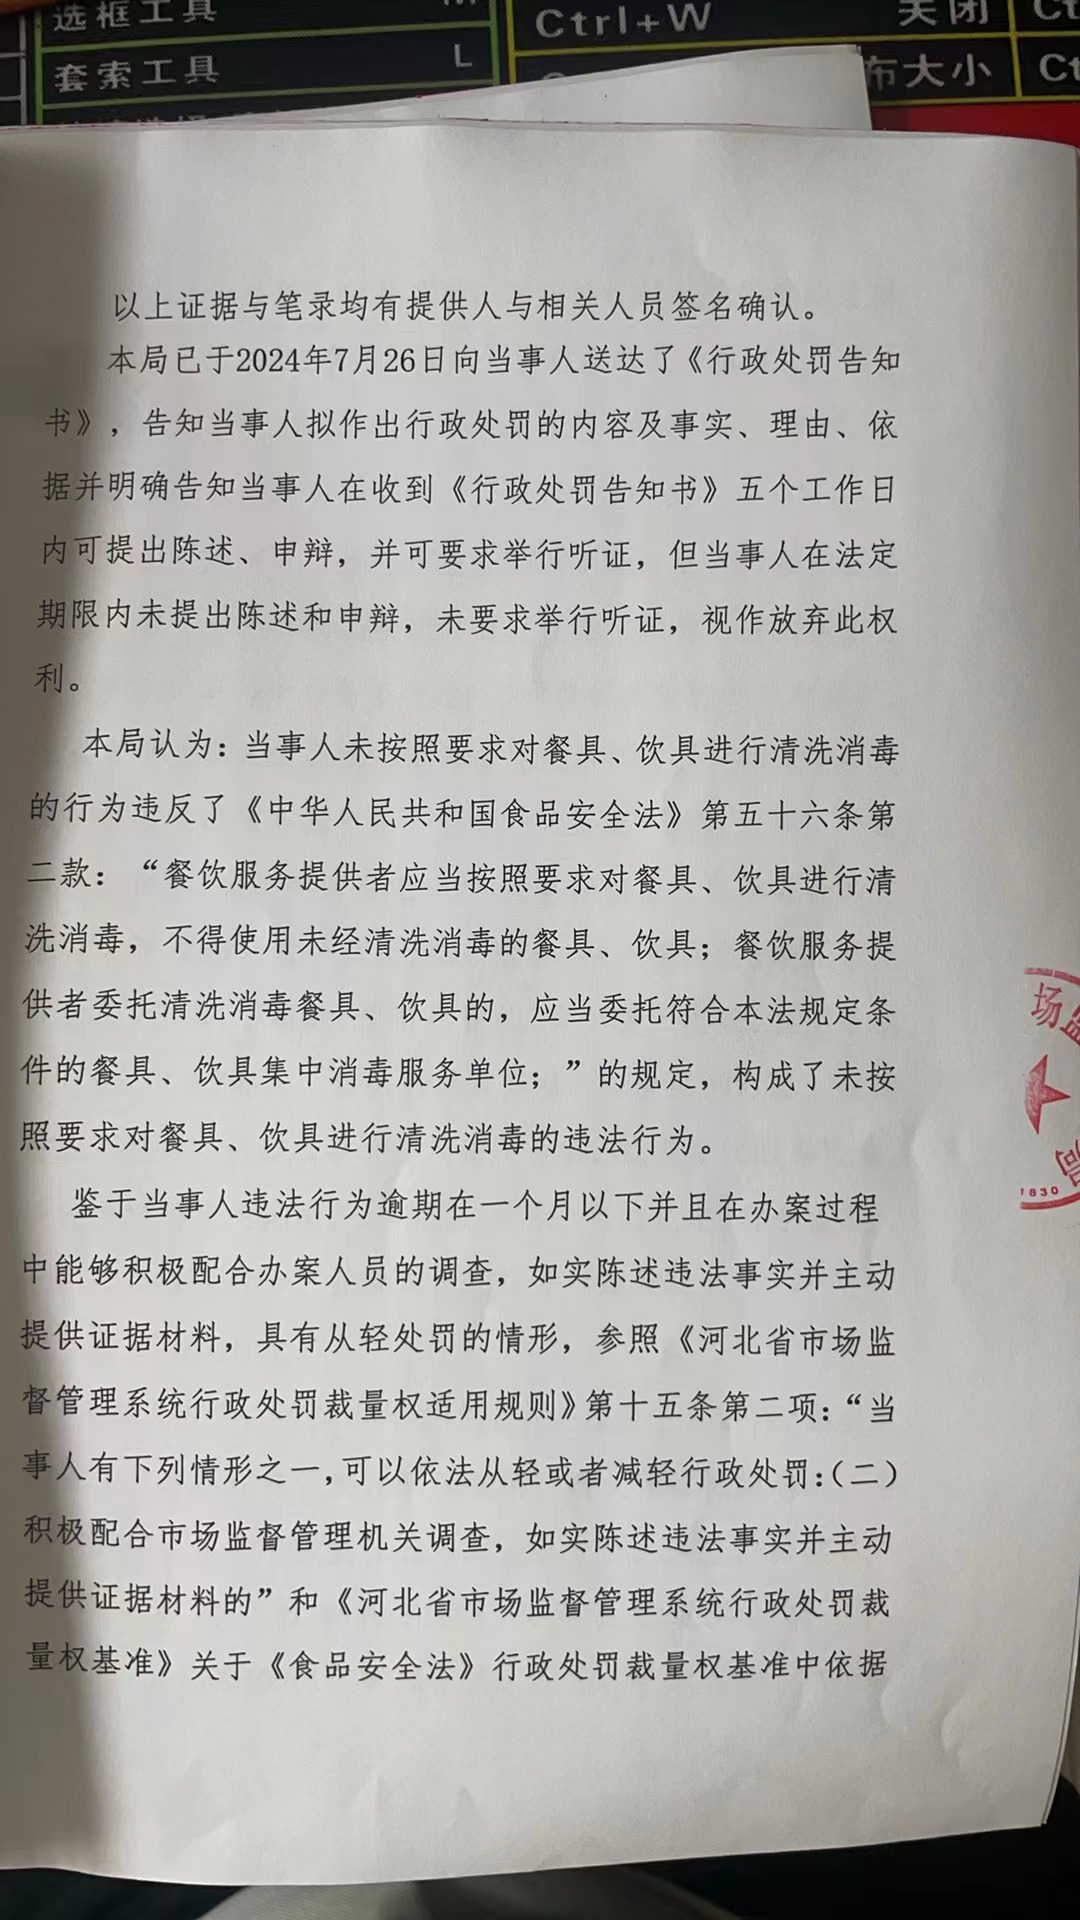 选框工具
Ctrl+W
关闭
套索工具
L
布大小
以上证据与笔录均有提供人与相关人员签名确认。
本局已于2024年7月26日向当事人送达了《行政处罚告知
书》，告知当事人拟作出行政处罚的内容及事实、理由、依
据并明确告知当事人在收到《行政处罚告知书》五个工作日
内可提出陈述、申辩，并可要求举行听证，但当事人在法定
期限内未提出陈述和申辩，未要求举行听证，视作放弃此权
利。
本局认为：当事人未按照要求对餐具、饮具进行清洗消毒
的行为违反了《中华人民共和国食品安全法》第五十六条第
二款：“餐饮服务提供者应当按照要求对餐具、饮具进行清
洗消毒，不得使用未经清洗消毒的餐具、饮具；餐饮服务提
供者委托清洗消毒餐具、饮具的，应当委托符合本法规定条
件的餐具、饮具集中消毒服务单位；”的规定，构成了未按
照要求对餐具、饮具进行清洗消毒的违法行为。
场监
局
1830
鉴于当事人违法行为逾期在一个月以下并且在办案过程
中能够积极配合办案人员的调查，如实陈述违法事实并主动
提供证据材料，具有从轻处罚的情形，参照《河北省市场监
督管理系统行政处罚裁量权适用规则》第十五条第二项：“当
事人有下列情形之一，可以依法从轻或者减轻行政处罚：（二）
积极配合市场监督管理机关调查，如实陈述违法事实并主动
提供证据材料的”和《河北省市场监督管理系统行政处罚裁
量权基准》关于《食品安全法》行政处罚裁量权基准中依据